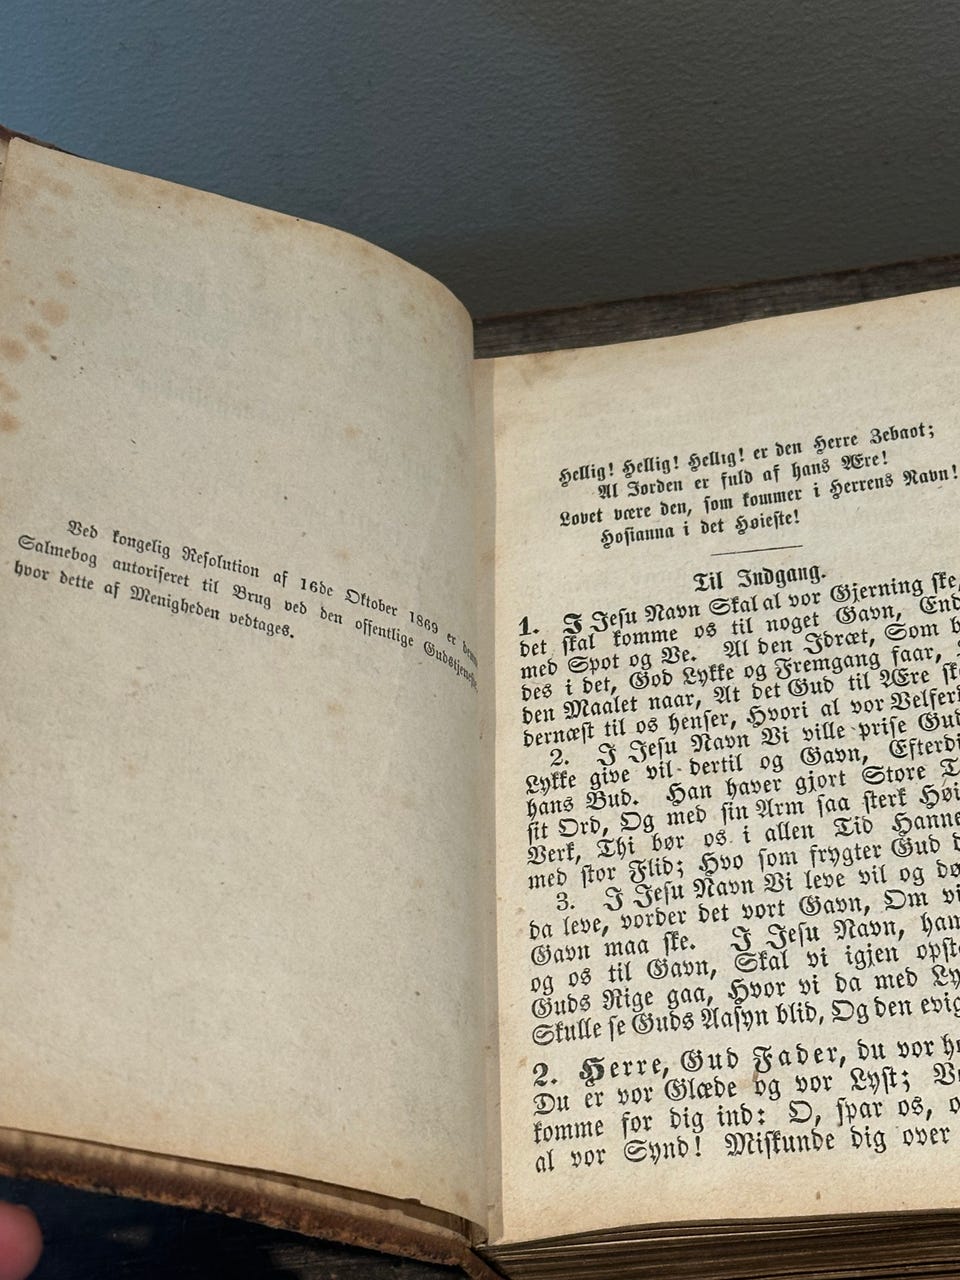 Ved kongelig Resolution af 16de Oktober 1869 er denne
Salmebog autoriseret til Brug ved den offentlige Gudstjeneste,
hvor dette af Menigheden vedtages.
Hellig! Hellig! Hellig! er den Herre Zebaot;
Al Jorden er fuld af hans Ære!
Lovet være den, som kommer i Herrens Navn!
Hosianna i det Høieste!
Til Indgang.
1. I Jesu Navn Skal al vor Gjerning ske,
det skal komme os til noget Gavn, End
med Spot og Ve. Al den Idræt, Som b
des i det, God Lykke og Fremgang faar,
den Maalet naar, At det Gud til Ære sk
dernæst til os henser, Hvori al vor Velferd
2. I Jesu Navn Vi ville prise Gud
Lykke give vil dertil og Gavn, Efterdi
hans Bud. Han haver gjort Store T
sit Ord, Og med sin Arm saa sterk Høi
Verk, Thi bør os i allen Tid Hanne
med stor Flid; Hvo som frygter Gud d
3. I Jesu Navn Vi leve vil og dø
da leve, vorder det vort Gavn, Om vi
Gavn maa ske. I Jesu Navn, ham
og os til Gavn, Skal vi igjen opst
Guds Rige gaa, Hvor vi da med Ly
Skulle se Guds Aasyn blid, Og den evig
2. Herre, Gud Fader, du vor h
Du er vor Glæde og vor Lyst; V
komme for dig ind: O, spar os, o
al vor Synd! Miskunde dig over